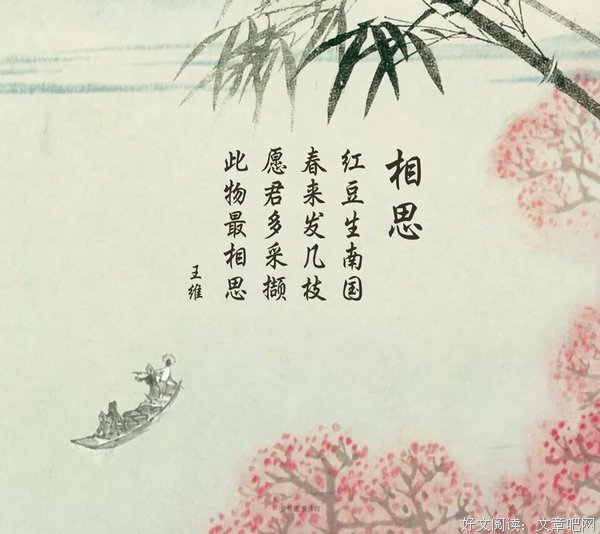 相思
红豆生南国
春来发几枝
愿君多采撷
此物最相思
王维
好文阅读：文章吧网